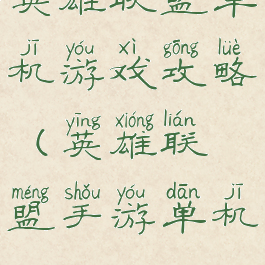 英雄联盟单
jī yóu xì gōng lüè
机游戏攻略
yīng xióng lián
（英雄联
méng shǒu yóu dān jī
盟手游单机